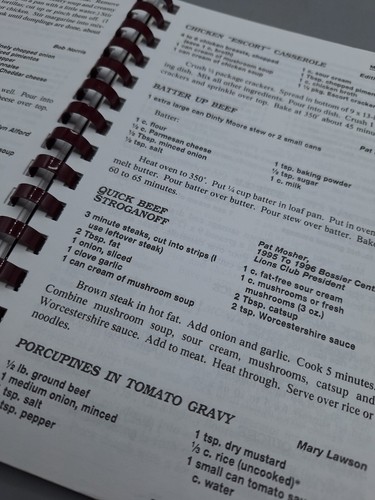 Bob Norris
ely chopped onion
epper
Cheddar cheese
well. Pour into
heese over top,
yn Alford
soup
CHICKEN "ESCORT" CASSEROLE
1 c. sour cream
Crush ½ package crackers. Spread in bottom of 9 x 13-
ing dish. Mix all other ingredients. Pour into dish. Crush
crackers and sprinkle over top. Bake at 350° about 45 minu
BATTER UP BEEF
1 extra large can Dinty Moore stew or 2 small cans
Pat
Batter:
1 c. flour
½ c. Parmesan cheese
½ Tbsp. minced onion
½ tsp. salt
1 tsp. baking powder
½ tsp. sugar
1 c. milk
Heat oven to 350°. Put ¼ cup batter in loaf pan. Put in oven
melt butter. Pour batter over butter. Pour stew over batter. Bake
60 to 65 minutes.
QUICK BEEF
STROGANOFF
Pat Mosher,
1995 To 1996 Bossier Cent
Lions Club President
3 minute steaks, cut into strips (I
use leftover steak)
2 Tbsp. fat
1 onion, sliced
1 clove garlic
1 can cream of mushroom soup
1 c. fat-free sour cream
1 c. mushrooms or fresh
mushrooms (3 oz.)
2 Tbsp. catsup
2 tsp. Worcestershire sauce
Brown steak in hot fat. Add onion and garlic. Cook 5 minutes.
Combine mushroom soup, sour cream, mushrooms, catsup and
Worcestershire sauce. Add to meat. Heat through. Serve over rice or
noodles.
PORCUPINES IN TOMATO GRAVY
Mary Lawson
½ lb. ground beef
1 medium onion, minced
tsp. salt
tsp. pepper
1 tsp. dry mustard
⅓ c. rice (uncooked)*
1 small can tomato sa
c. water